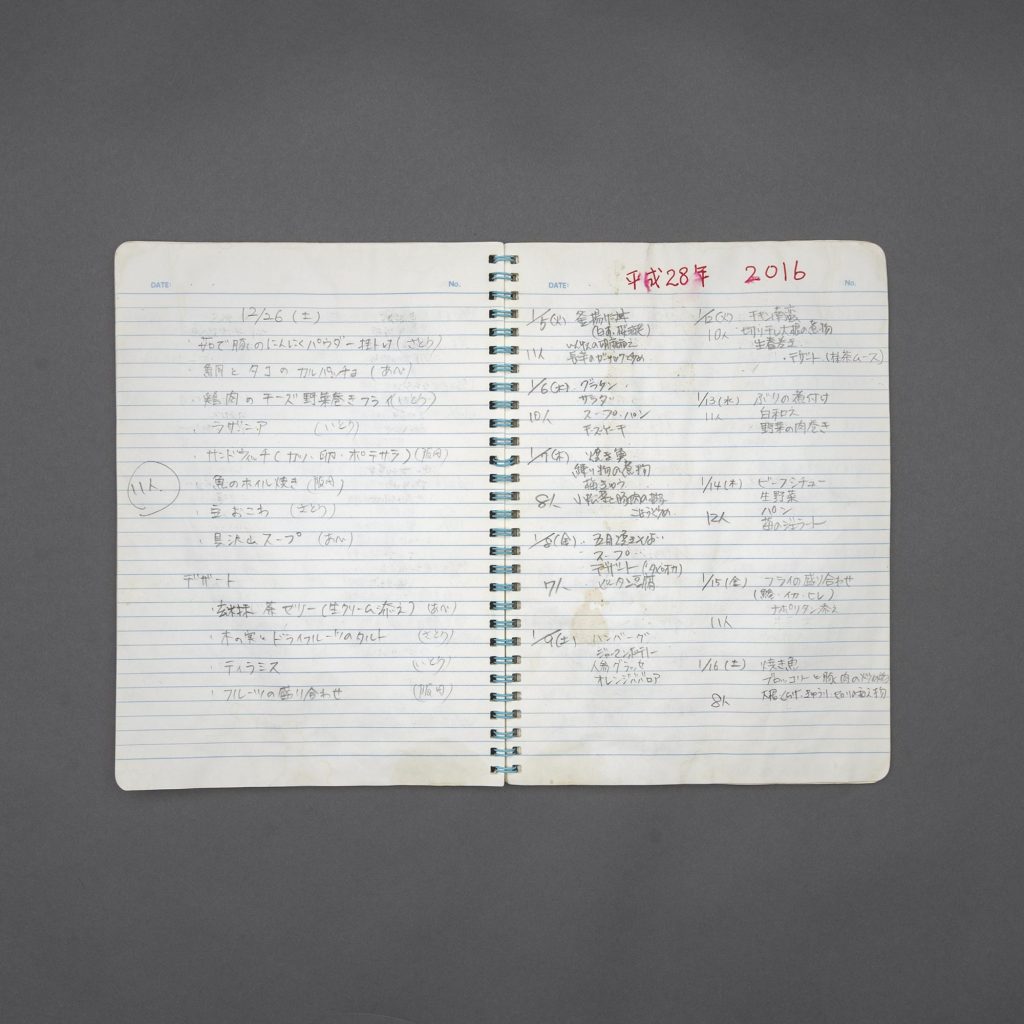 DATE:
No.
12/26 (土)
・茹で豚のにんにくパウダー掛け (さとう)
・魚介とタコのカルパッチョ (あべ)
・鶏肉のチーズ野菜巻きフライ(いとう)
・ラザニア (いとう)
・サンドウィッチ(カツ・卵・ポテサラ)(飯田)
11人
・魚のホイル焼き (飯田)
・豆おこわ (さとう)
・具沢山スープ (あべ)
デザート
・茶ゼリー(生クリーム添え) (あべ)
・木の実とドライフルーツのタルト (さとう)
・ティラミス (いとう)
・フルーツの盛り合わせ (飯田)
DATE:
平成28年 2016
No.
1/5(火) 釜揚げ
11人
1/6(水) グラタン
サラダ
10人 スープ・パン
チーズケーキ
1/7(木)
練り物の煮物
8人
1/8(金) 五目
スープ
デザート(タピオカ)
7人
1/9(土) ハンバーグ
ジャーマンポテト
人参グラッセ
オレンジババロア
チキン南蛮
10人 切り干し大根の煮物
生春巻き
・デザート(抹茶ムース)
1/13(水) ぶりの煮付け
11人 白和え
野菜の肉巻き
1/14(木) ビーフシチュー
生野菜
12人 パン
苺のジェラート
1/15(金) フライの盛り合わせ
(鮭・イカ・ヒレ)
ナポリタン添え
11人
1/16(土) 焼き魚
ブロッコリーと豚肉の
8人